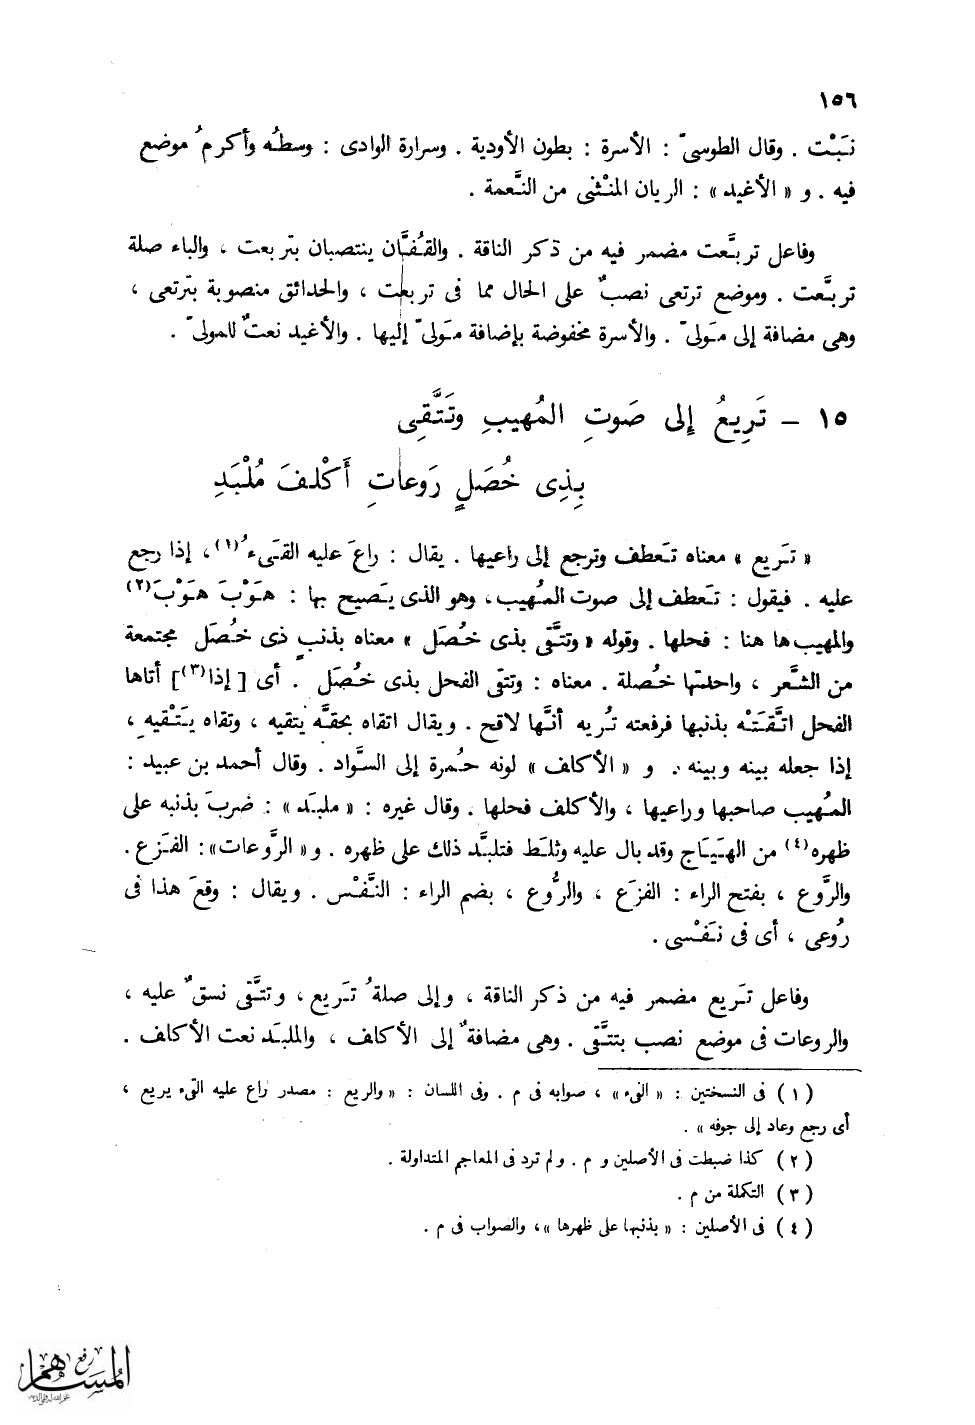 ١٥٦
نَبْت . وقال الطوسىّ : الأسرة : بطون الأودية . وسرارة الوادى : وسطُه وأكرمُ موضع
فيه . و « الأغيد » : الريان المنْثنى من النَّعمة .
وفاعل تربَّعت مضمر فيه من ذكر الناقة . والقُفَّان ينتصبان بتربعت ، والباء صلة
تربَّعت . وموضع ترتعى نصبٌ على الحال مما فى تربعت ، والحدائق منصوبة بترتعى ،
وهى مضافة إلى مَولىّ . والأسرة مخفوضة بإضافة مَولىّ إليها . والأغيد نعتٌ للمولىّ .
١٥ – تَرِيعُ إِلى صَوتِ المُهيبِ وتَتَّقِى
بِذِى خُصَلٍ رَوعاتِ أَكْلفَ مُلْبَدِ
« تَريع » معناه تَعطف وترجع إلى راعيها . يقال : راعَ عليه القَىءُ(١)، إذا رجع
عليه . فيقول : تَعطف إلى صوت المُهيب، وهو الذى يَصيح بها : هَوْبَ هَوْبَ(٢)
والمهيب ها هنا : فحلها . وقوله « وتتَّقى بذى خُصَل » معناه بذنبٍ ذى خُصَل مجتمعة
من الشَّعر ، واحدتها خُصلة . معناه : وتتقى الفحل بذى خُصَل . أى [ إذا(٣)] أتاها
الفحل اتَّقَتْه بذنبها فرفعته تُريه أنَّها لاقح . ويقال اتقاه بحقَّه يتقيه ، وتقاه يَتْقيه ،
إذا جعله بينه وبينه . و « الأكلف » لونه حُمرة إلى السَّواد . وقال أحمد بن عبيد :
المُهيب صاحبها وراعيها ، والأكلف فحلها . وقال غيره : « ملبَد » : ضربَ بذنبه على
ظهره(٤) من الهَيَاج وقد بال عليه وثلَط فتلبَّد ذلك على ظهره . و« الرَّوعات»: الفَزع .
والرَّوع ، بفتح الراء : الفزَع ، والرُّوع ، بضم الراء : النَّفْس . ويقال : وقعَ هذا فى
رُوعى ، أى فى نَفْسى .
وفاعل تَريع مضمر فيه من ذكر الناقة ، وإلى صلةُ تَريع، وتتَّقى نسقٌ عليه ،
والروعات فى موضع نصب بتتَّقى . وهى مضافةٌ إلى الأكلف ، والملبَد نعت الأكلف .
(١) فى النسختين : « الىء » ، صوابه فى م . وفى اللسان : «والريع : مصدر راع عليه القىء يريع ،
أى رجع وعاد إلى جوفه » .
(٢) كذا ضبطت فى الأصلين و م . ولم ترد فى المعاجم المتداولة .
(٣) التكملة من م .
(٤) فى الأصلين : « بذنبها على ظهرها »، والصواب فى م .